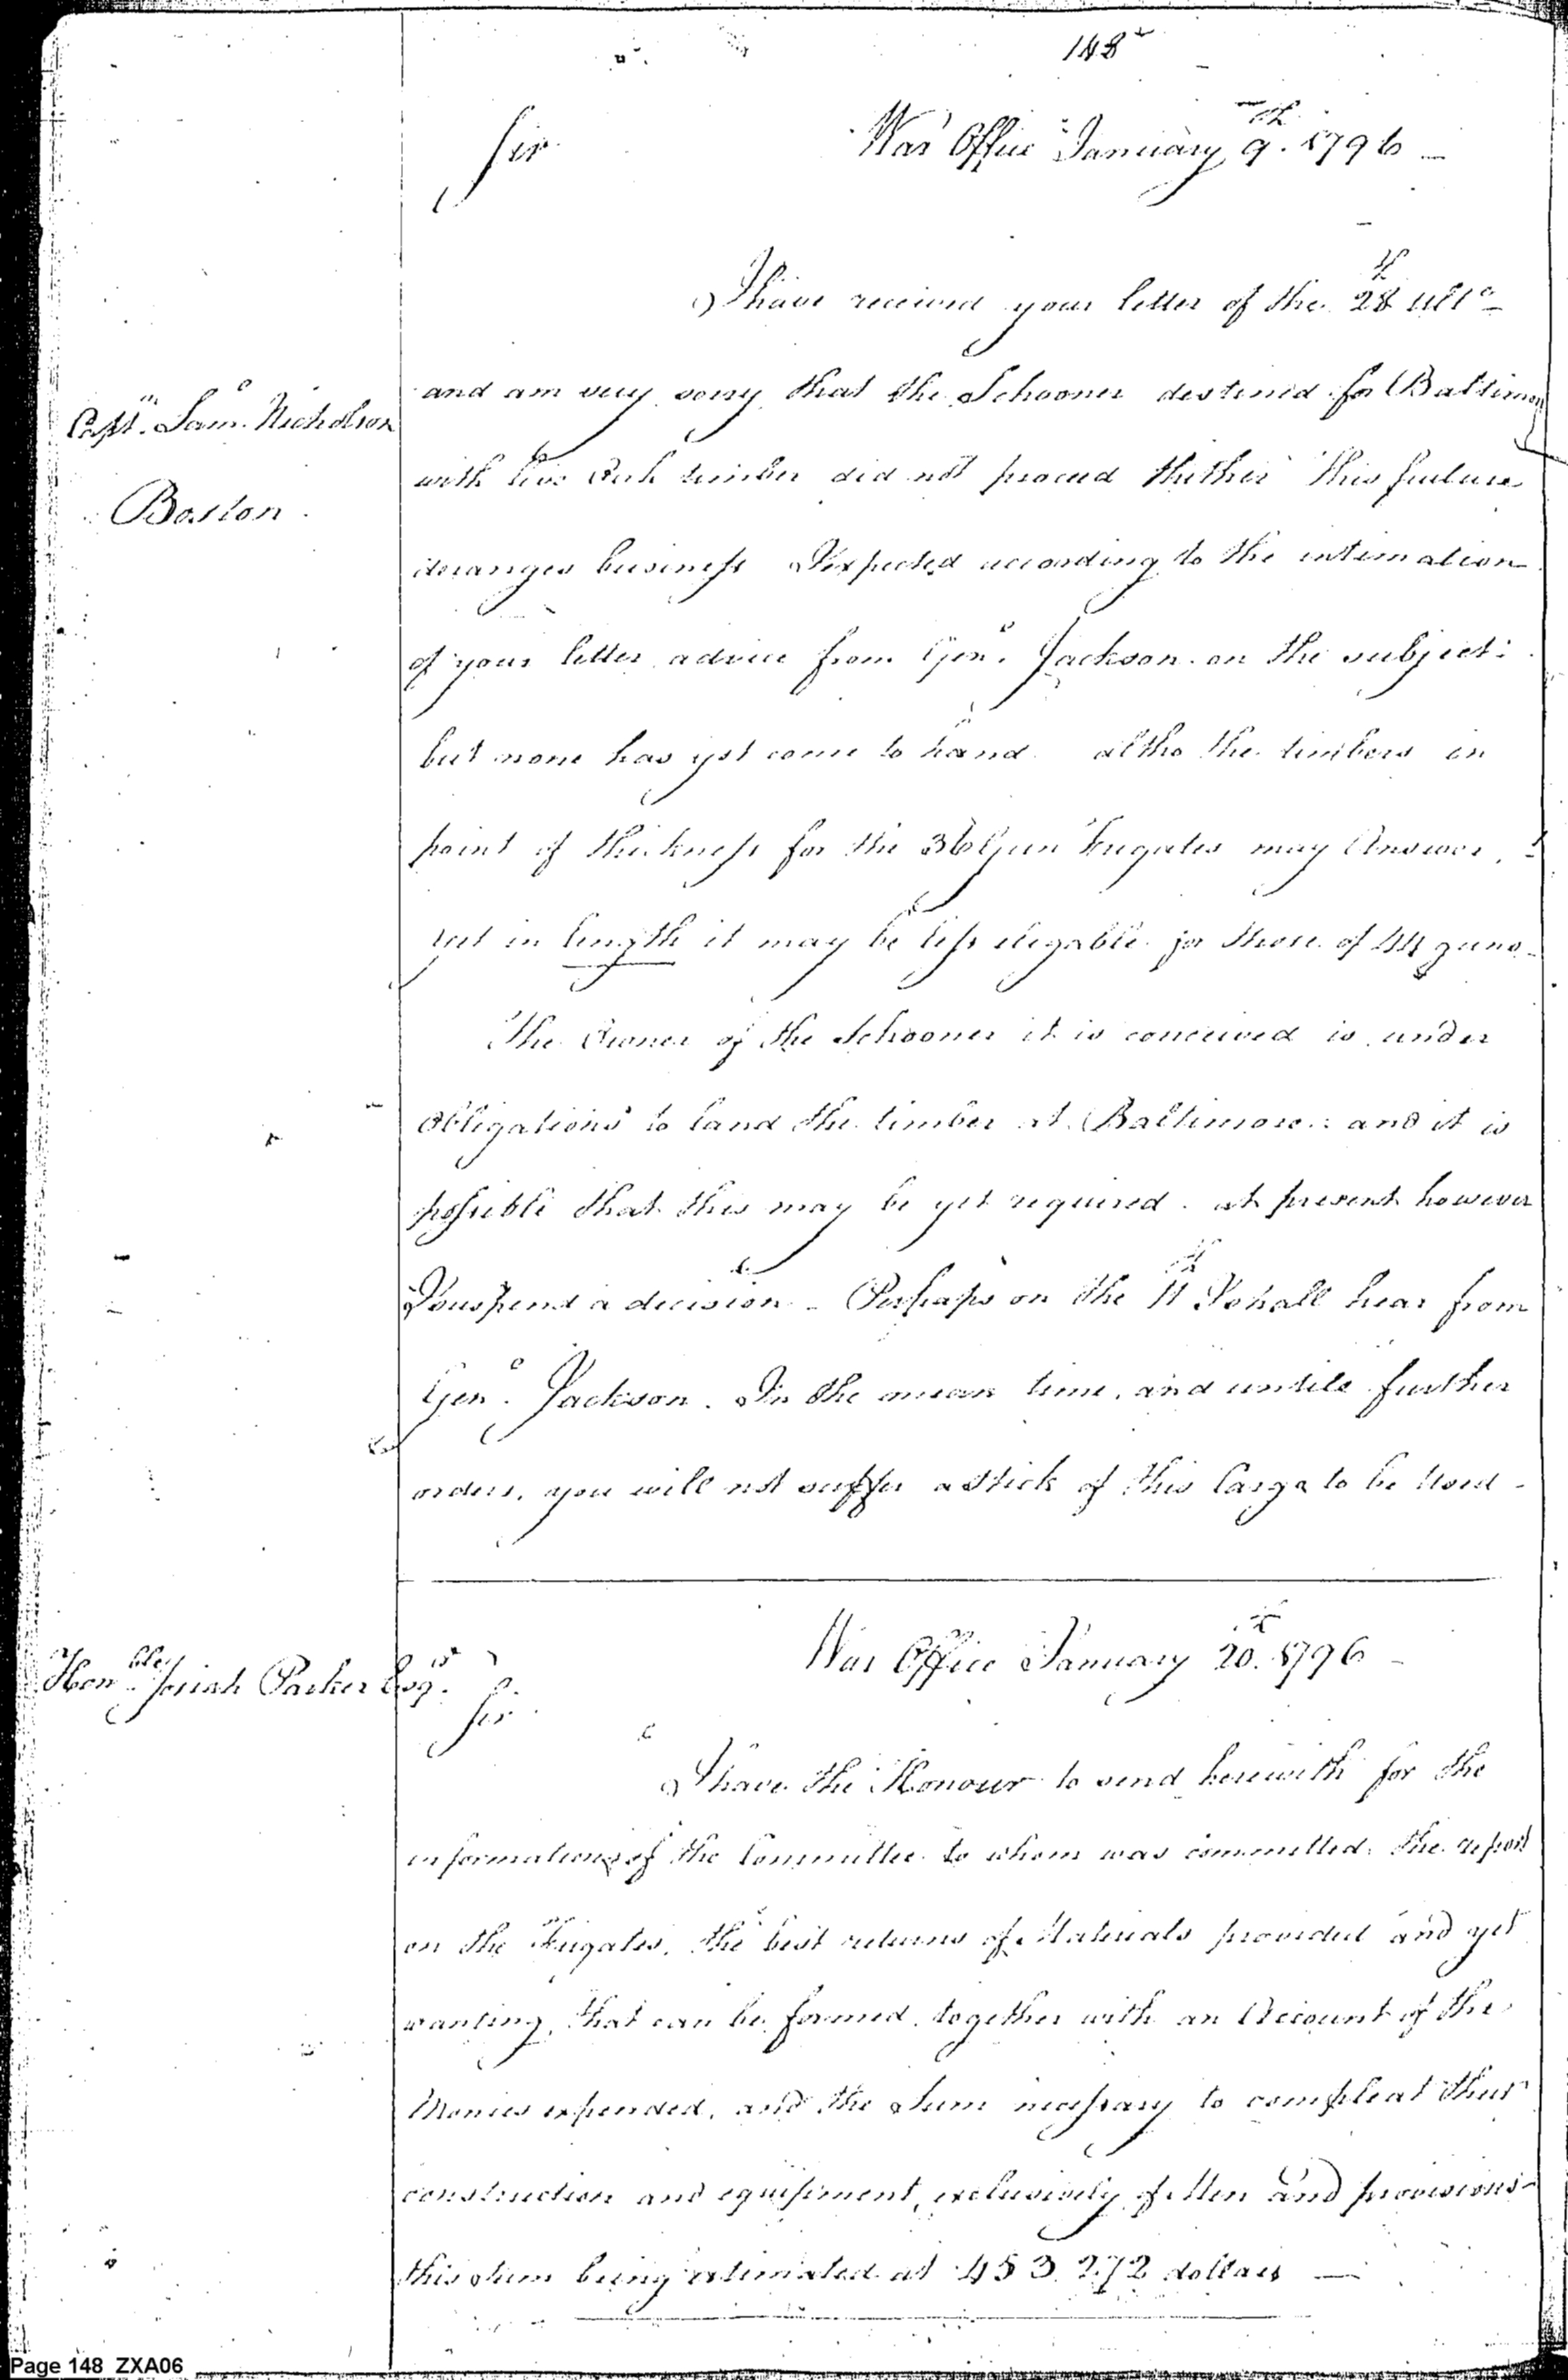 148
War Office January 9th. 1796
Sir
I have received your letter of the 28th ulto
Capt. Saml. Nicholson
Boston
and am very sorry that the Schooner destined for Baltimore
with live Oak timber did not proceed thither this failure
deranges business I expected according to the intimation
of your letter advice from Genl. Jackson on the subject:
but none has yet come to hand altho the timbers in
point of thickness for the 36 Gun Frigates may Answer,
yet in length it may be less elegable for those of 44 guns.
The Owner of the Schooner it is conceived is under
Obligations to land the timber at Baltimore: and it is
possible that this may be yet required. at present however
I suspend a decision - Perhaps on the 11th I shall hear from
Genl. Jackson. In the mean time, and untill further
orders, you will not suffer a stick of this Cargo to be Used -
War Office January 20th. 1796
Honble. Josiah Parker Esqr.
Sir
I have the Honour to send herewith for the
information of the Committee to whom was committed the report
on the Frigates, the best returns of Materials provided and yet
wanting, that can be formed, together with an Account of the
Monies expended, and the Sum necessary to compleat their
construction and equipment, exclusively of Men and provisions
this Sum being estimated at 453.272 dollars —
Page 148 ZXA06